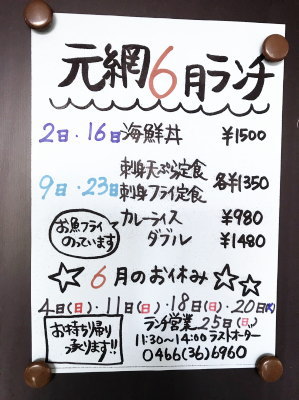 元網6月ランチ
2日・16日 海鮮丼 ¥1500
9日・23日 刺身天ぷら定食
刺身フライ定食 各¥1350
お魚フライ
のっています
カレーライス ¥980
ダブル ¥1480
☆☆6月のお休み☆☆
4日(日)・11日(日)・18日(日)・20日(火)
お持ち帰り
承ります!!
ランチ営業 25日(日)
11:30〜14:00 ラストオーダー
0466(36)6960